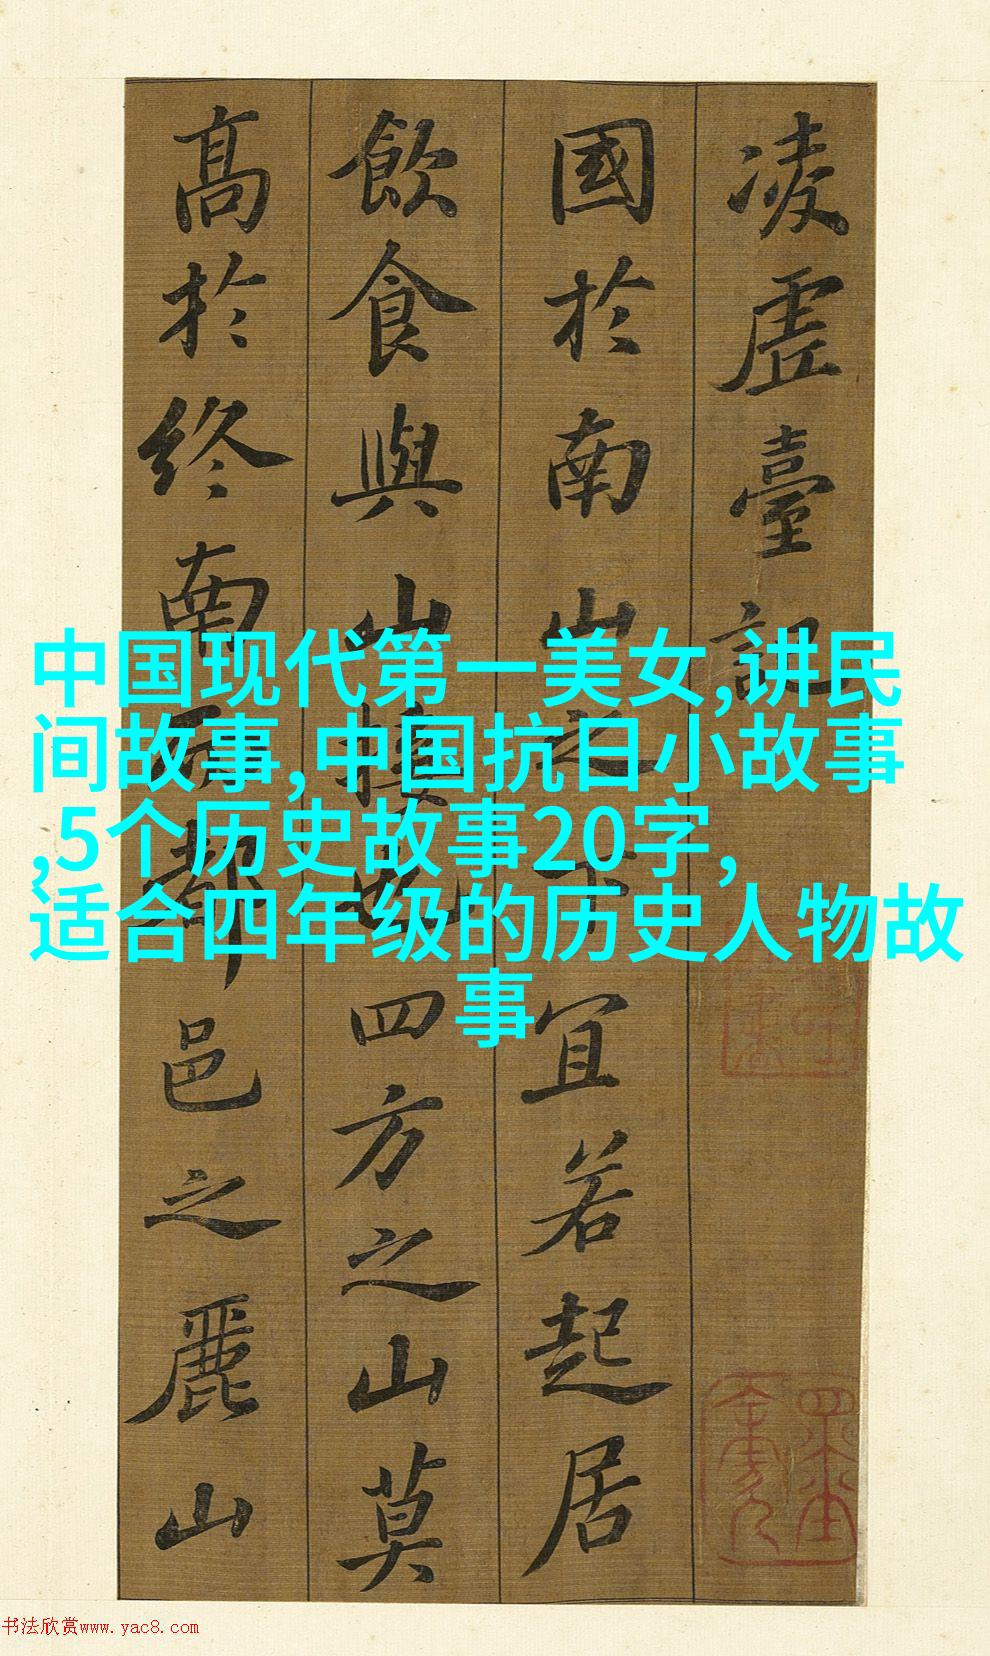 凌虛臺記
國於南山之下宜若起居
飲食與山接也四方之山莫
高於終南而都邑之麗山
中国现代第一美女,讲民
间故事,中国抗日小故事
,5个历史故事20字,
适合四年级的历史人物故
事
书法欣赏www.yac8.com